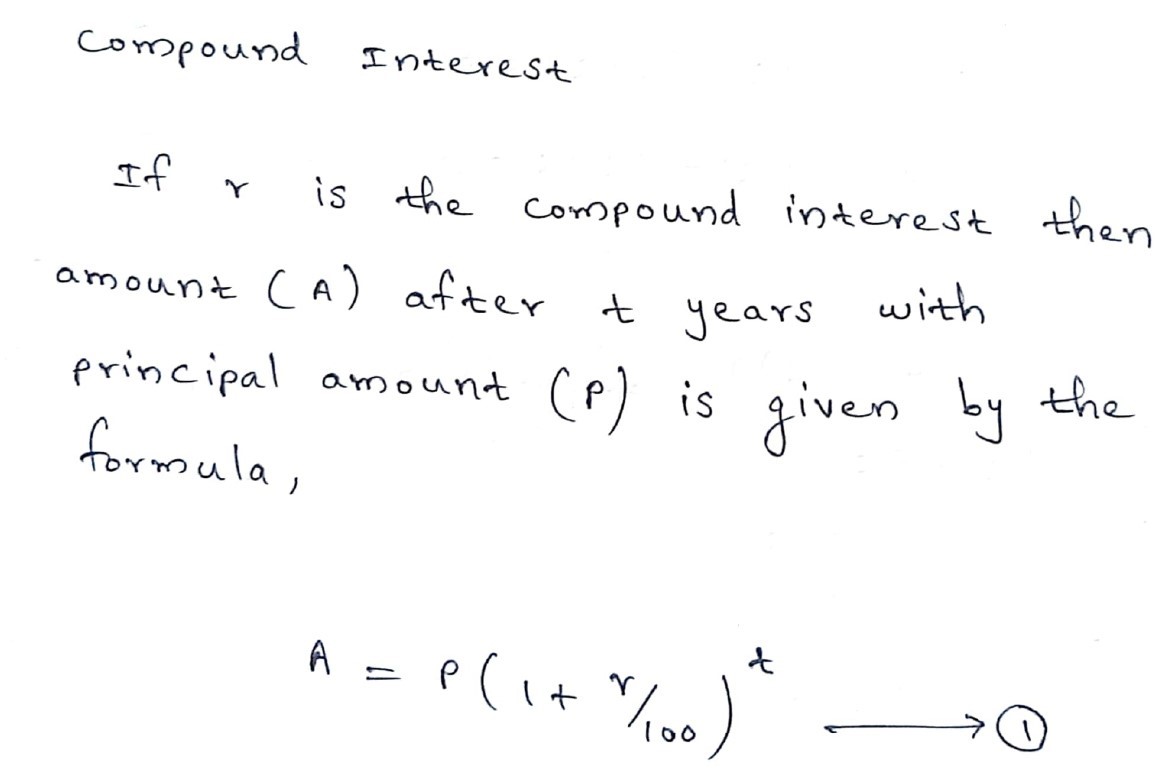 Compound Interest
If r is the compound interest then
amount (A) after t years with
principal amount (P) is given by the
formula,
A = P(1+ r/100)^t ⟶ ①